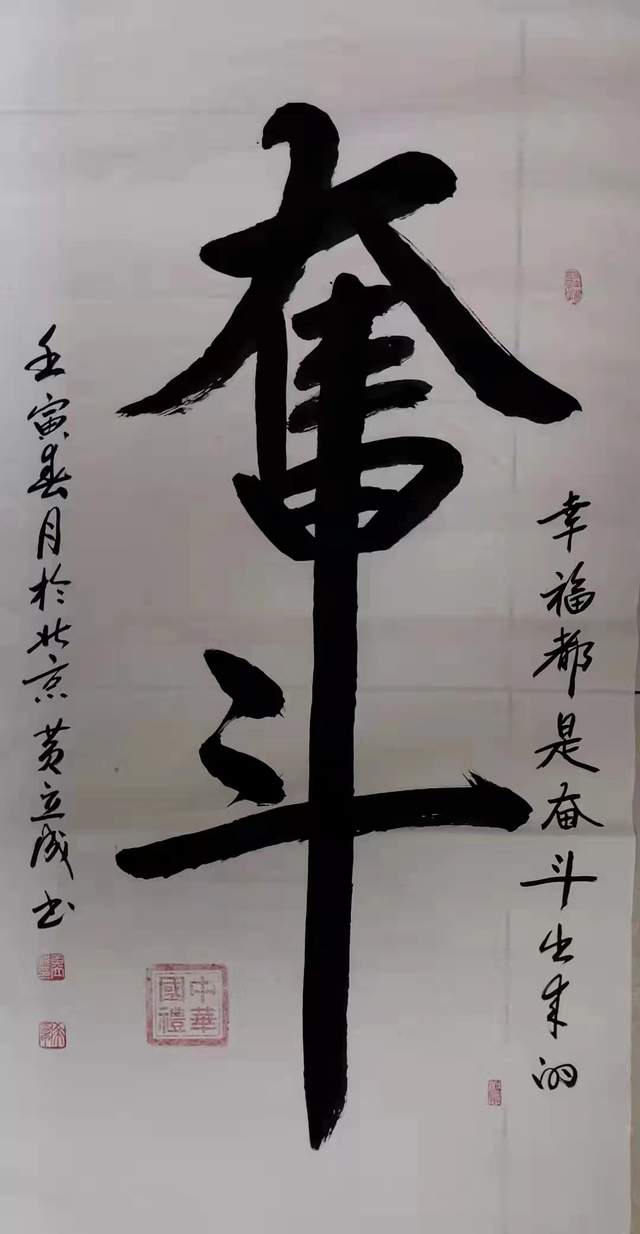 奮斗
幸福都是奋斗出来的
壬寅春月於北京黄立成书
中華
國禮